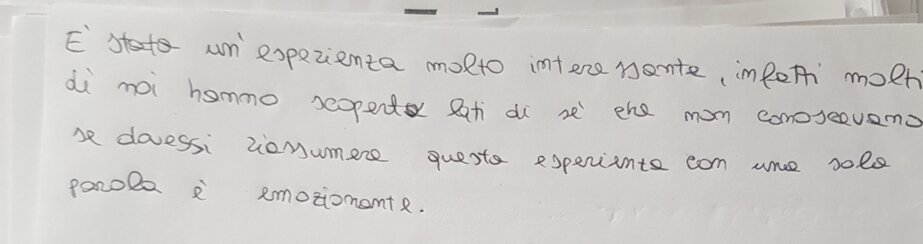 E' stata un'esperienza molto interessante, infatti molti
di noi hanno scoperto lati di sé che non conoscevano
se dovessi riassumere questa esperienza con una sola
parola è emozionante.